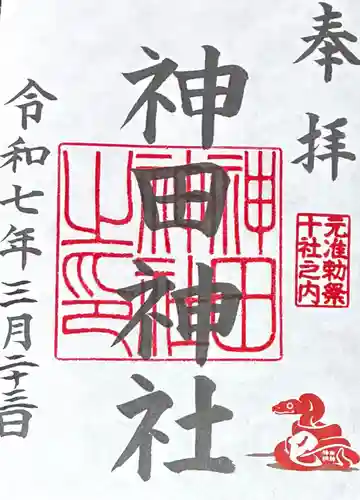 奉拝
元准勅祭
十社之内
神田神社
神田神社之印
令和七年三月二十三日